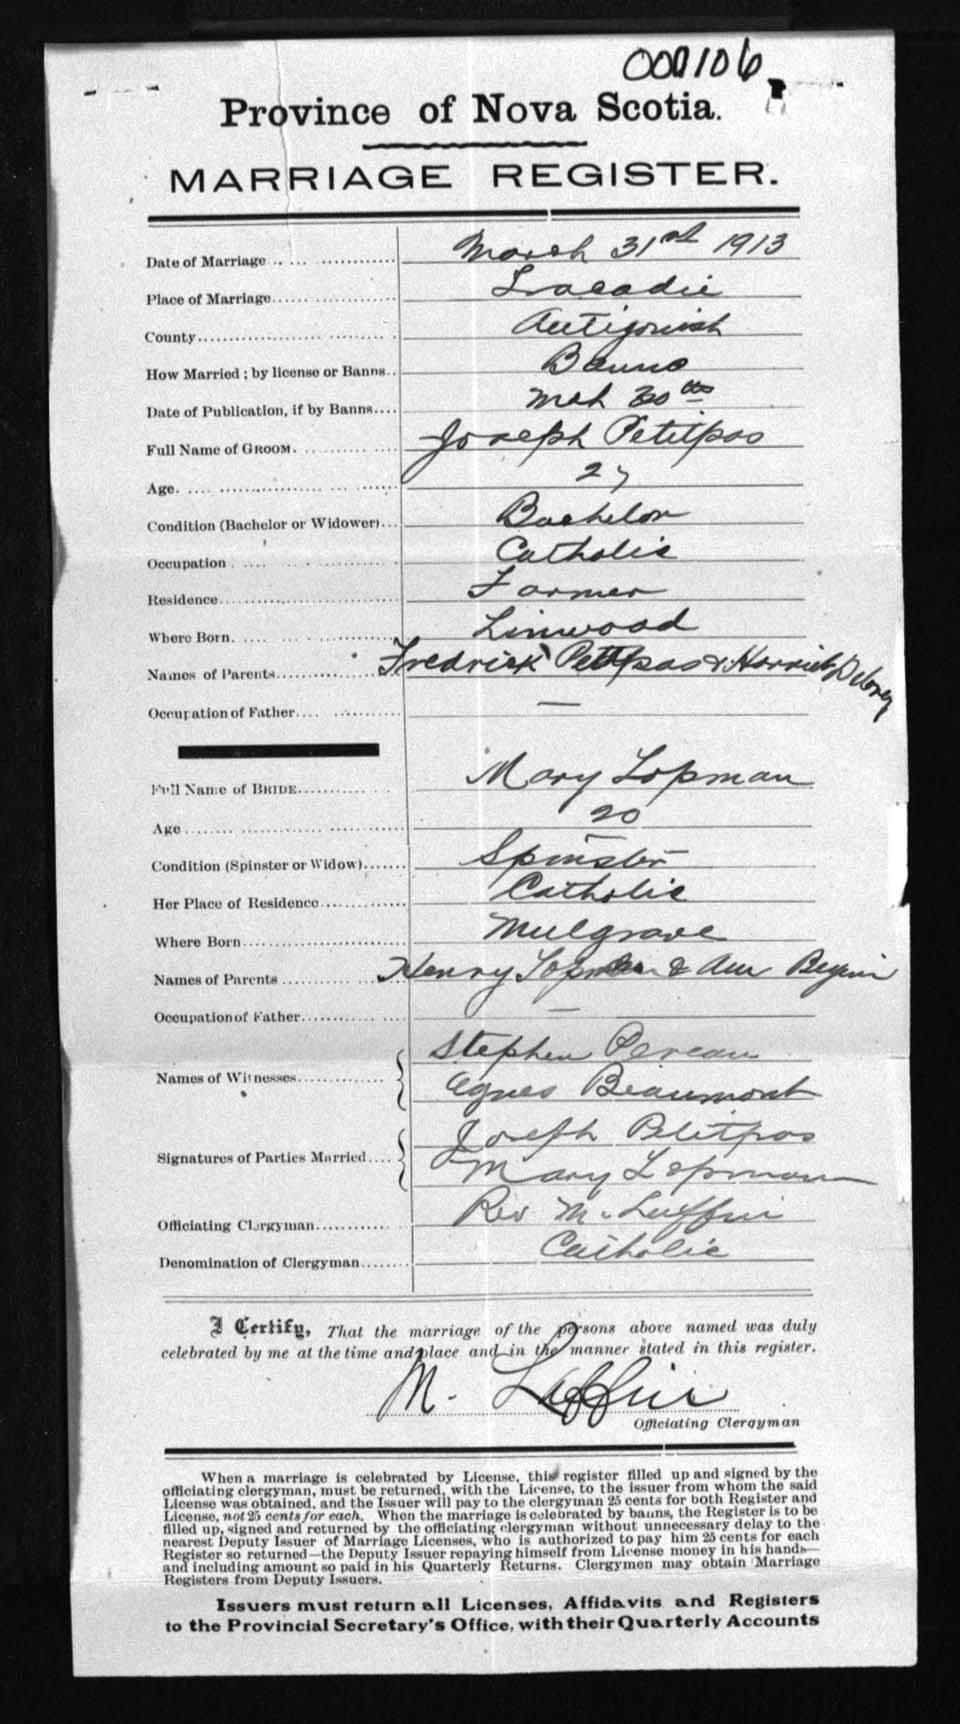 000106
Province of Nova Scotia.
MARRIAGE REGISTER.
Date of Marriage March 31st 1913
Place of Marriage Tracadie
County Antigonish
How Married; by license or Banns Banns
Date of Publication, if by Banns Mch 30th
Full Name of GROOM. Joseph Petitpas
Age. 27
Condition (Bachelor or Widower) Bachelor
Occupation Catholic
Residence Farmer
Where Born. Linwood
Names of Parents Fredrick Petitpas & Harriet Delorey
Occupation of Father —
Full Name of BRIDE Mary Lopman
Age 20
Condition (Spinster or Widow) Spinster
Her Place of Residence Catholic
Where Born Mulgrave
Names of Parents Henry & Ann
Occupation of Father —
Names of Witnesses Stephen
Agnes Beaumont
Signatures of Parties Married Joseph Petitpas
Mary Lopman
Officiating Clergyman Rev M. Laffin
Denomination of Clergyman Catholic
I Certify, That the marriage of the persons above named was duly
celebrated by me at the time and place and in the manner stated in this register.
M. Laffin
Officiating Clergyman
When a marriage is celebrated by License, this register filled up and signed by the
officiating clergyman, must be returned, with the License, to the issuer from whom the said
License was obtained, and the Issuer will pay to the clergyman 25 cents for both Register and
License, not 25 cents for each. When the marriage is celebrated by banns, the Register is to be
filled up, signed and returned by the officiating clergyman without unnecessary delay to the
nearest Deputy Issuer of Marriage Licenses, who is authorized to pay him 25 cents for each
Register so returned—the Deputy Issuer repaying himself from License money in his hands—
and including amount so paid in his Quarterly Returns. Clergymen may obtain Marriage
Registers from Deputy Issuers.
Issuers must return all Licenses, Affidavits and Registers
to the Provincial Secretary's Office, with their Quarterly Accounts